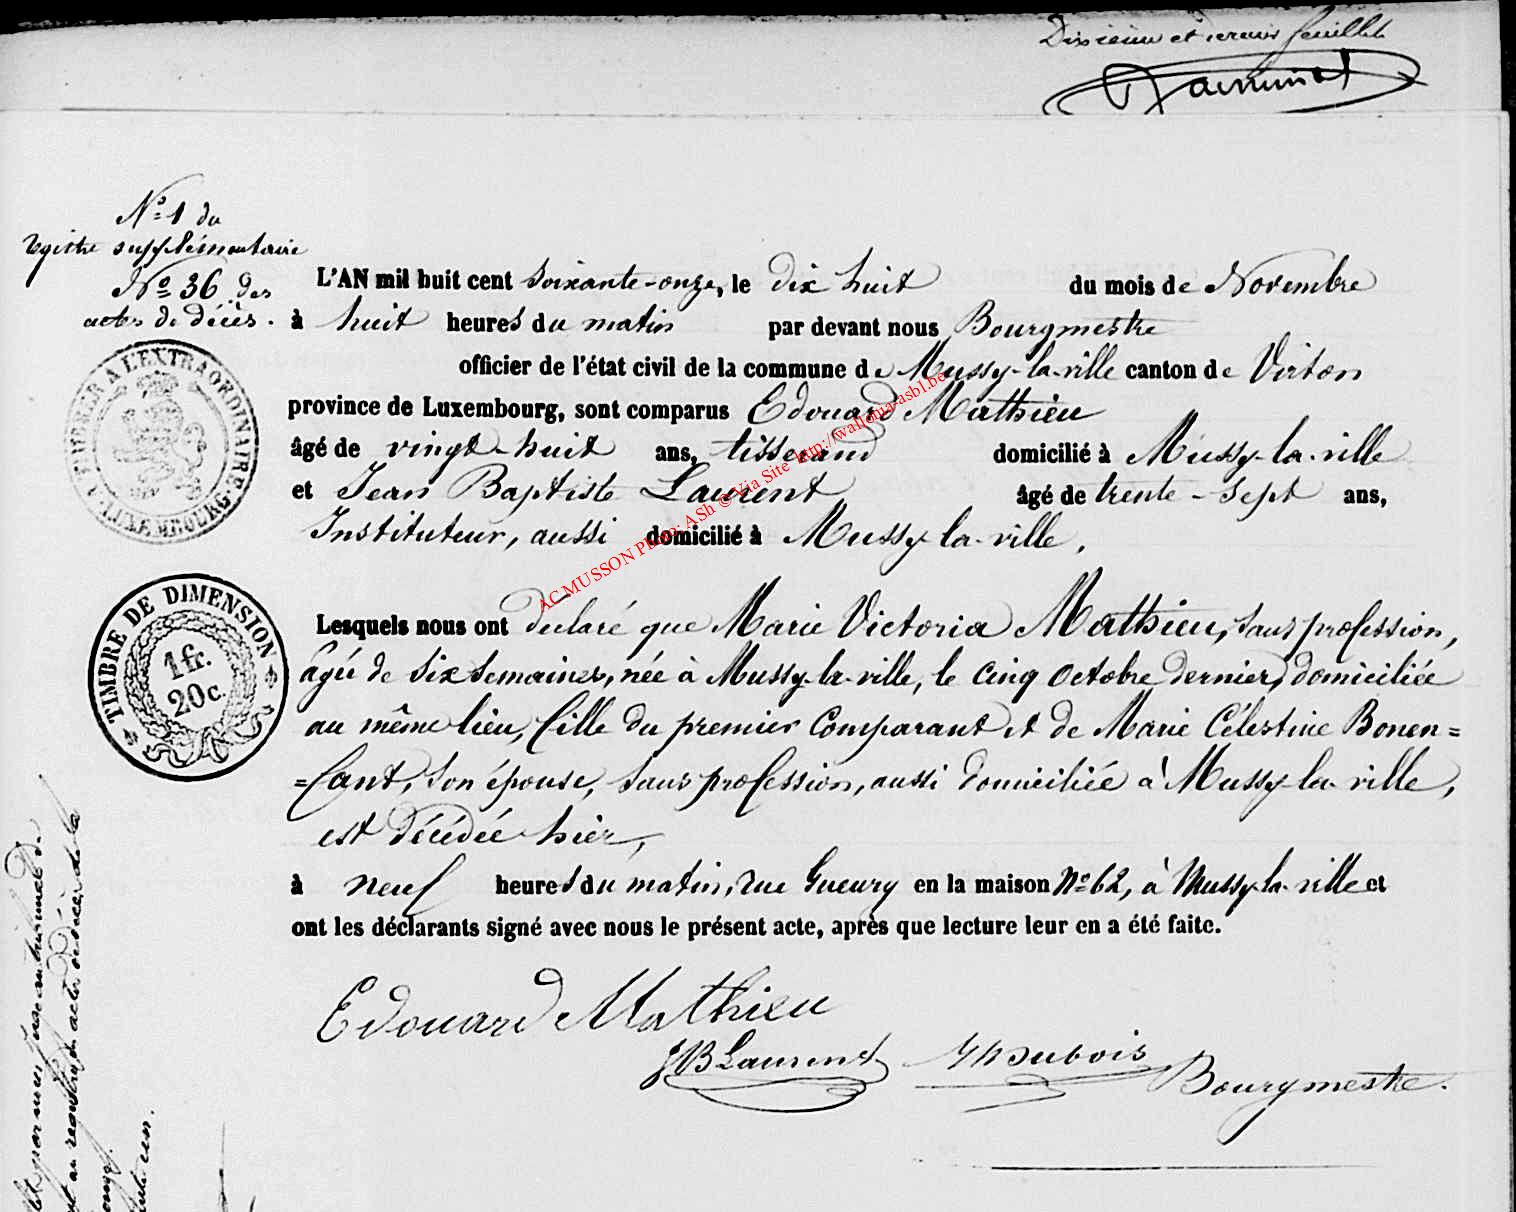 Dixième et dernier feuillet
N° 1 du
registre supplémentaire
N° 36 des
actes de décès.
TIMBRER A L'EXTRAORDINAIRE
LUXEMBOURG
TIMBRE DE DIMENSION
1 fr.
20 c.
L'AN mil huit cent soixante-onze, le dix huit du mois de Novembre
à huit heures du matin par devant nous Bourgmestre
officier de l'état civil de la commune de Mussy-la-ville canton de Virton
province de Luxembourg, sont comparus Edouard Mathieu
âgé de vingt-huit ans, tisserand domicilié à Mussy-la-ville
et Jean Baptiste Laurent âgé de trente-sept ans,
Instituteur, aussi domicilié à Mussy-la-ville.
Lesquels nous ont déclaré que Marie Victoria Mathieu, sans profession,
agée de six semaines, née à Mussy-la-ville, le cinq octobre dernier, domiciliée
au même lieu, fille du premier comparant et de Marie Célestine Bonen=
=fant, son épouse, sans profession, aussi domiciliée à Mussy-la-ville,
est décédée hier,
à neuf heures du matin, rue Gueury en la maison N° 62, à Mussy-la-ville et
ont les déclarants signé avec nous le présent acte, après que lecture leur en a été faite.
Edouard Mathieu
JB Laurent Dubois
Bourgmestre.
AC MUSSON Photo: ASh © Via Site http://wallonia-asbl.be